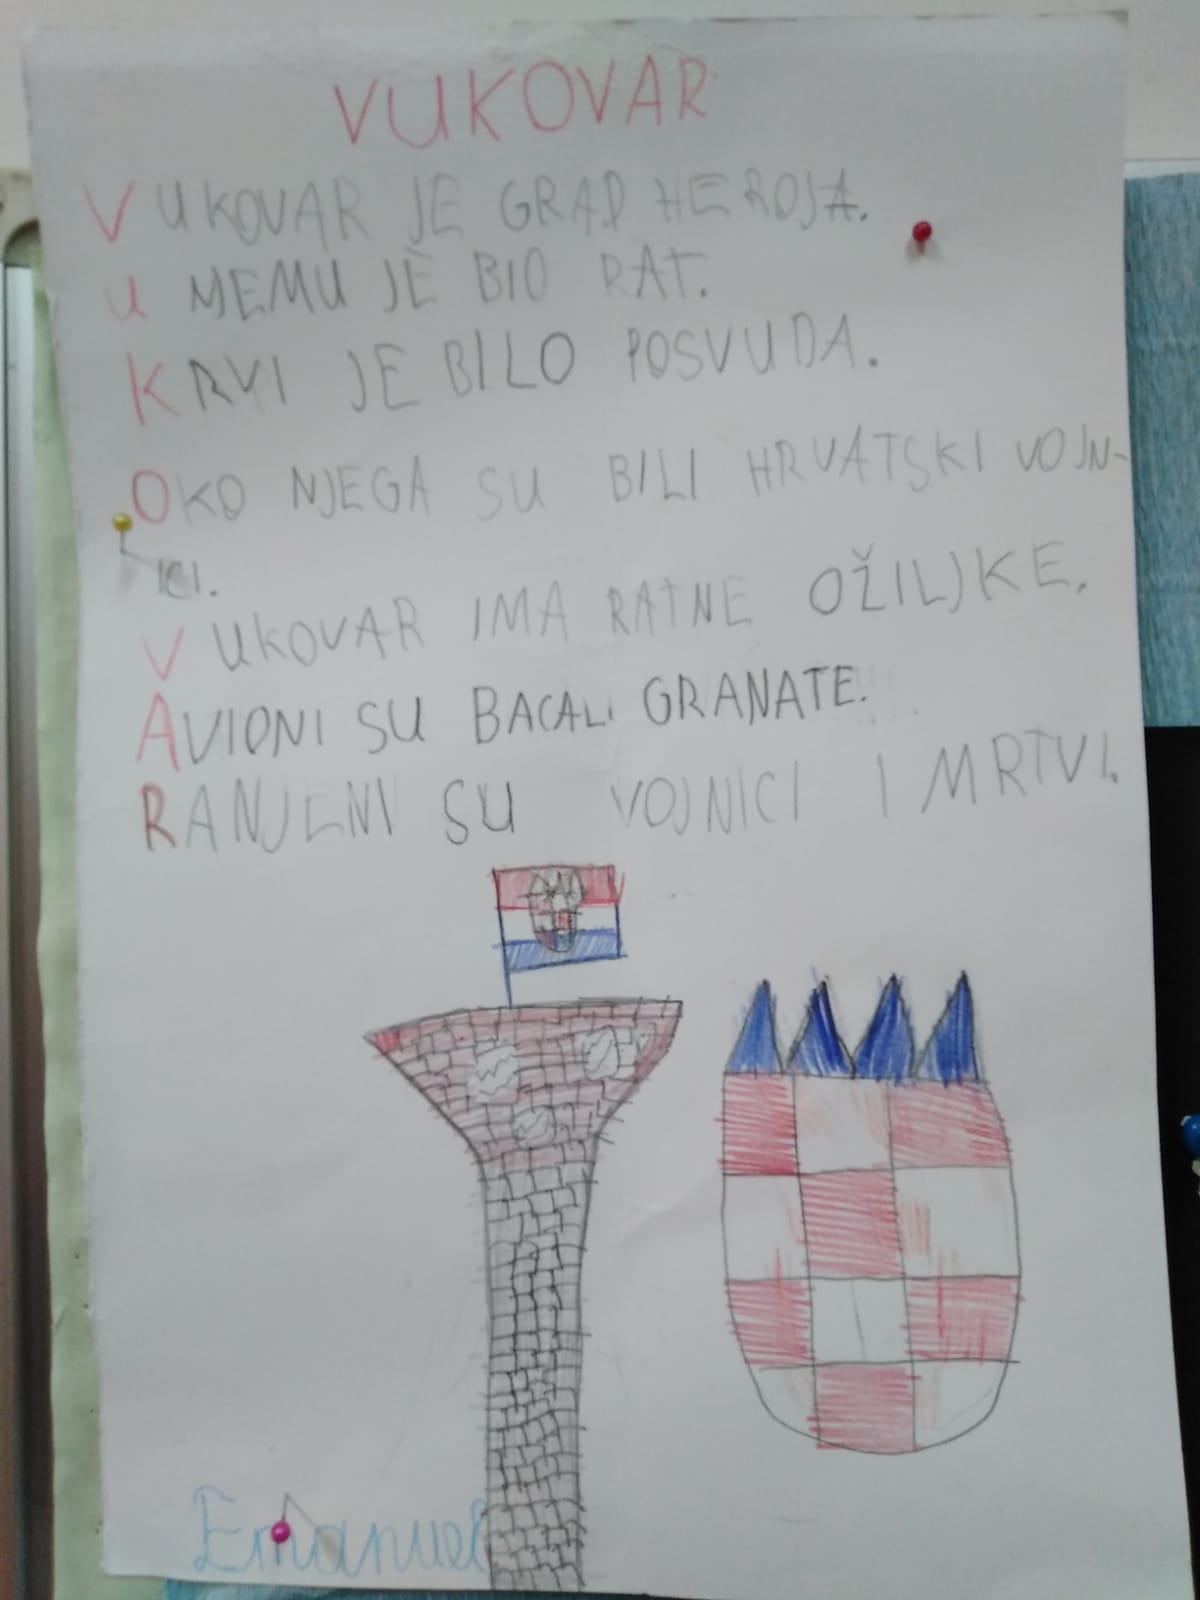 VUKOVAR
VUKOVAR JE GRAD HEROJA.
U NJEMU JE BIO RAT.
KRVI JE BILO POSVUDA.
OKO NJEGA SU BILI HRVATSKI VOJN-
ICI.
VUKOVAR IMA RATNE OŽILJKE.
AVIONI SU BACALI GRANATE.
RANJENI SU VOJNICI I MRTVI.
Emanuel